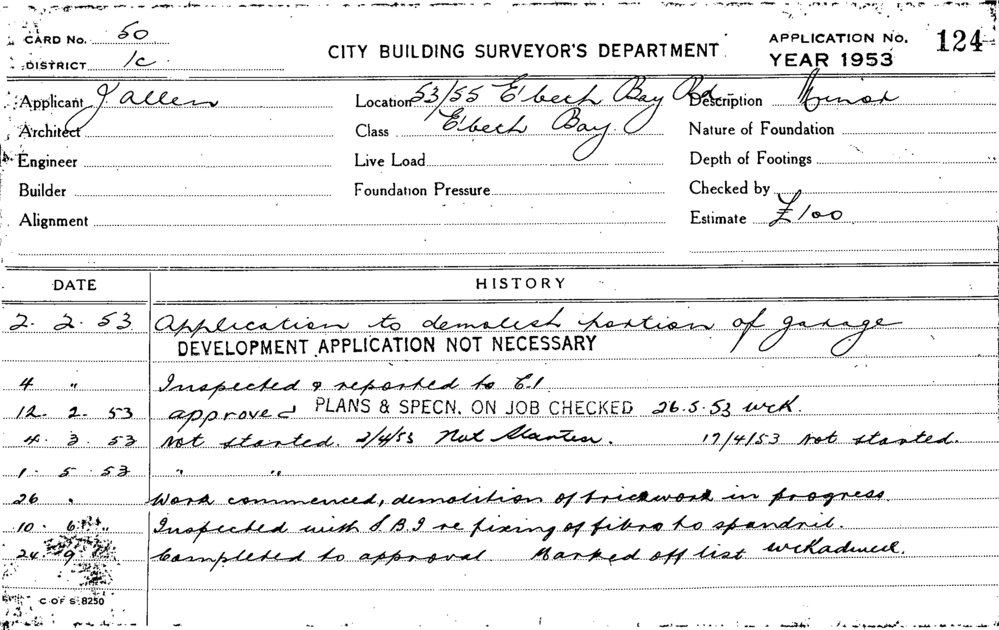 CARD No. 50
DISTRICT 1c
CITY BUILDING SURVEYOR'S DEPARTMENT
APPLICATION No. 124
YEAR 1953
Applicant J Allen
Location 53/55 E'beth Bay Rd
Description Minor
Architect
Class E'beth Bay
Nature of Foundation
Engineer
Live Load
Depth of Footings
Builder
Foundation Pressure
Checked by
Alignment
Estimate £100
DATE HISTORY
2. 2. 53 Application to demolish portion of garage
DEVELOPMENT APPLICATION NOT NECESSARY
4 " Inspected & reported to C.I
12. 2. 53 approved PLANS & SPECN. ON JOB CHECKED 26.5.53 WCK.
4. 3. 53 Not started. 2/4/53 Not Started. 17/4/53 Not started.
1. 5. 53 " "
26 " Work commenced, demolition of brickwork in progress.
10. 6. " Inspected with S.B.I re fixing of fibro to spandril.
24. 9 Completed to approval Marked off list
C OF S. 8250